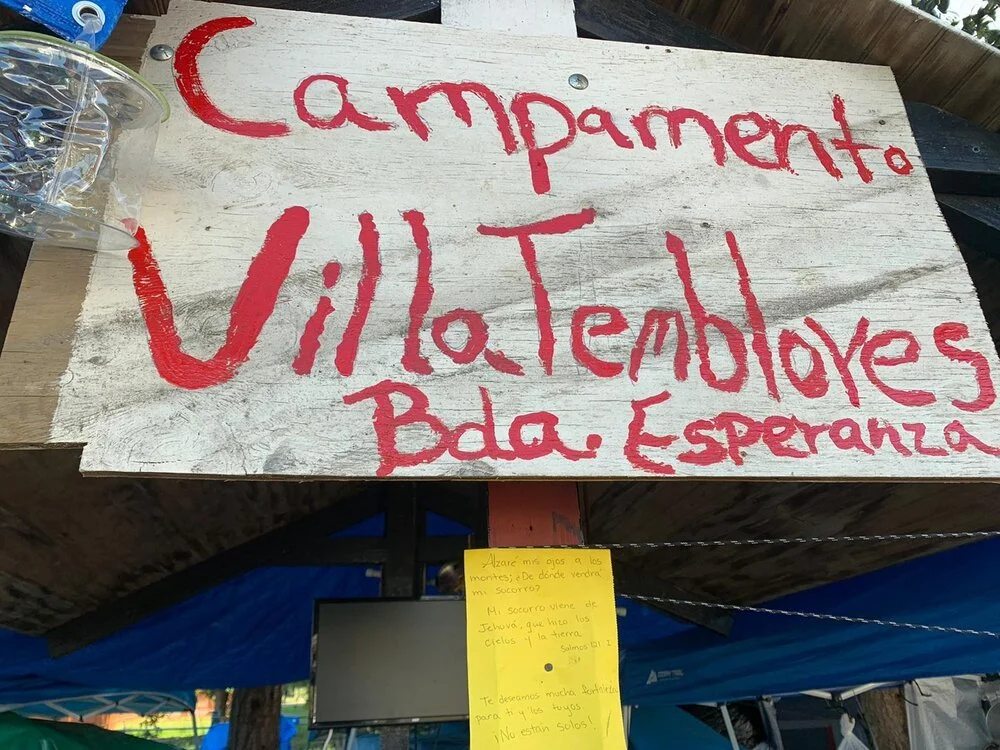 Campamento
Villa Temblores
Bda. Esperanza
Alzaré mis ojos a los
montes; ¿De dónde vendrá
mi socorro?
Mi socorro viene de
Jehová, que hizo los
cielos y la tierra
Salmos 121
Te deseamos mucha fortaleza
para ti y los tuyos
¡No están solos!